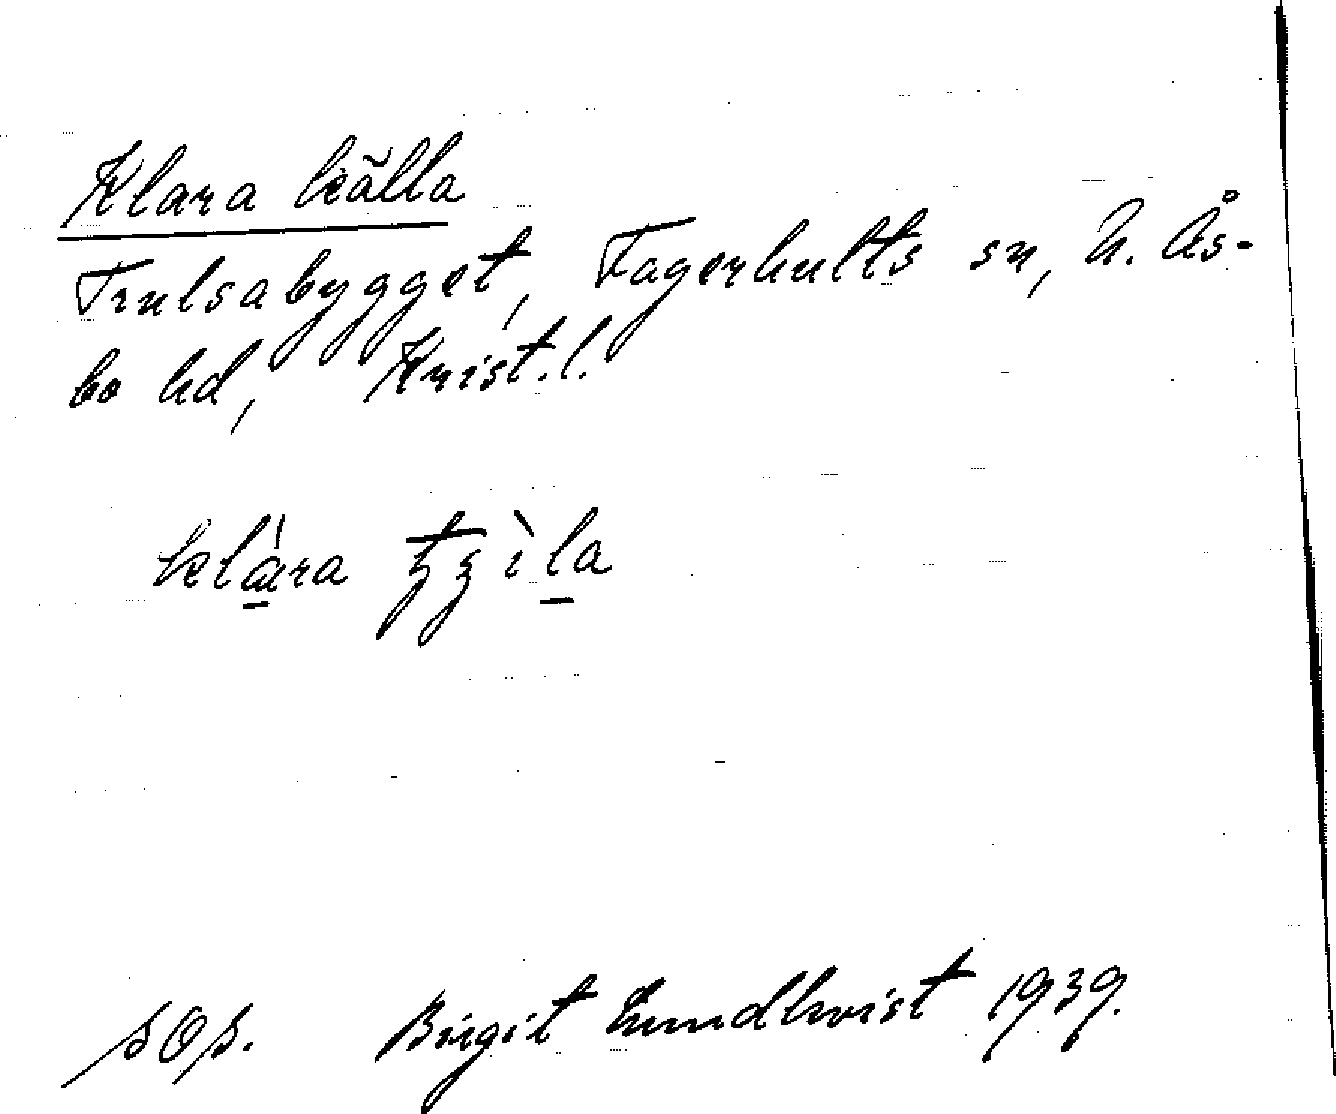 Klara källa
Trulsabygget, Fagerhults sn, N. Ås-
bo hd, Krist.l.
klára
Birgit Lundkvist 1939.